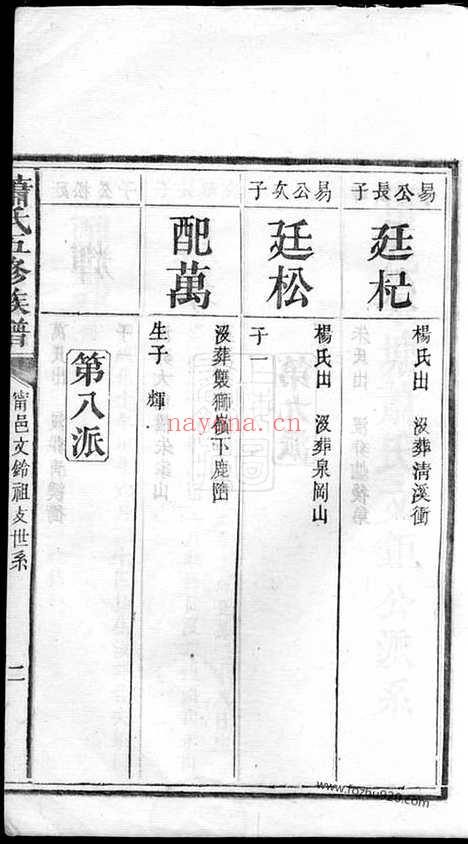 易公長子
廷杞
楊氏出 沒葬清溪衝
易公次子
廷松
楊氏出 沒葬泉岡山
子一
配萬
沒葬獅嶺下鹿陷
生子 輝
第八派
蕭氏五修族譜
甯邑文鈴祖支世系
二
nayona.cn
www.fozhu920.com